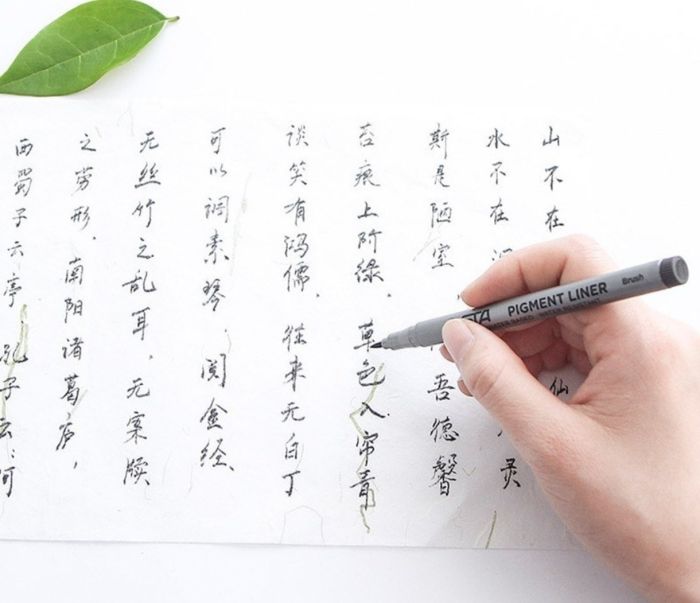 山不在 仙
水不在 灵
斯是陋室 吾德馨
苔痕上阶绿，草色入帘青
谈笑有鸿儒，往来无白丁
可以调素琴，阅金经，
无丝竹之乱耳，无案牍
之劳形，南阳诸葛庐，
西蜀子云亭，孔子云：何
TA PIGMENT LINER Brush